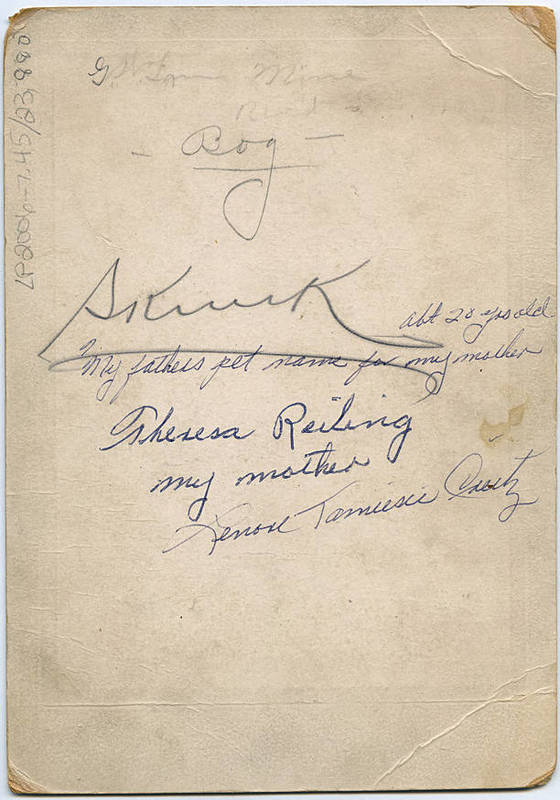 Mine
- Bog -
Skunk
abt 20 yrs old
My fathers pet name for my mother
Theresa Reiling
my mother
Lenore
LP2006-7-45/23-890